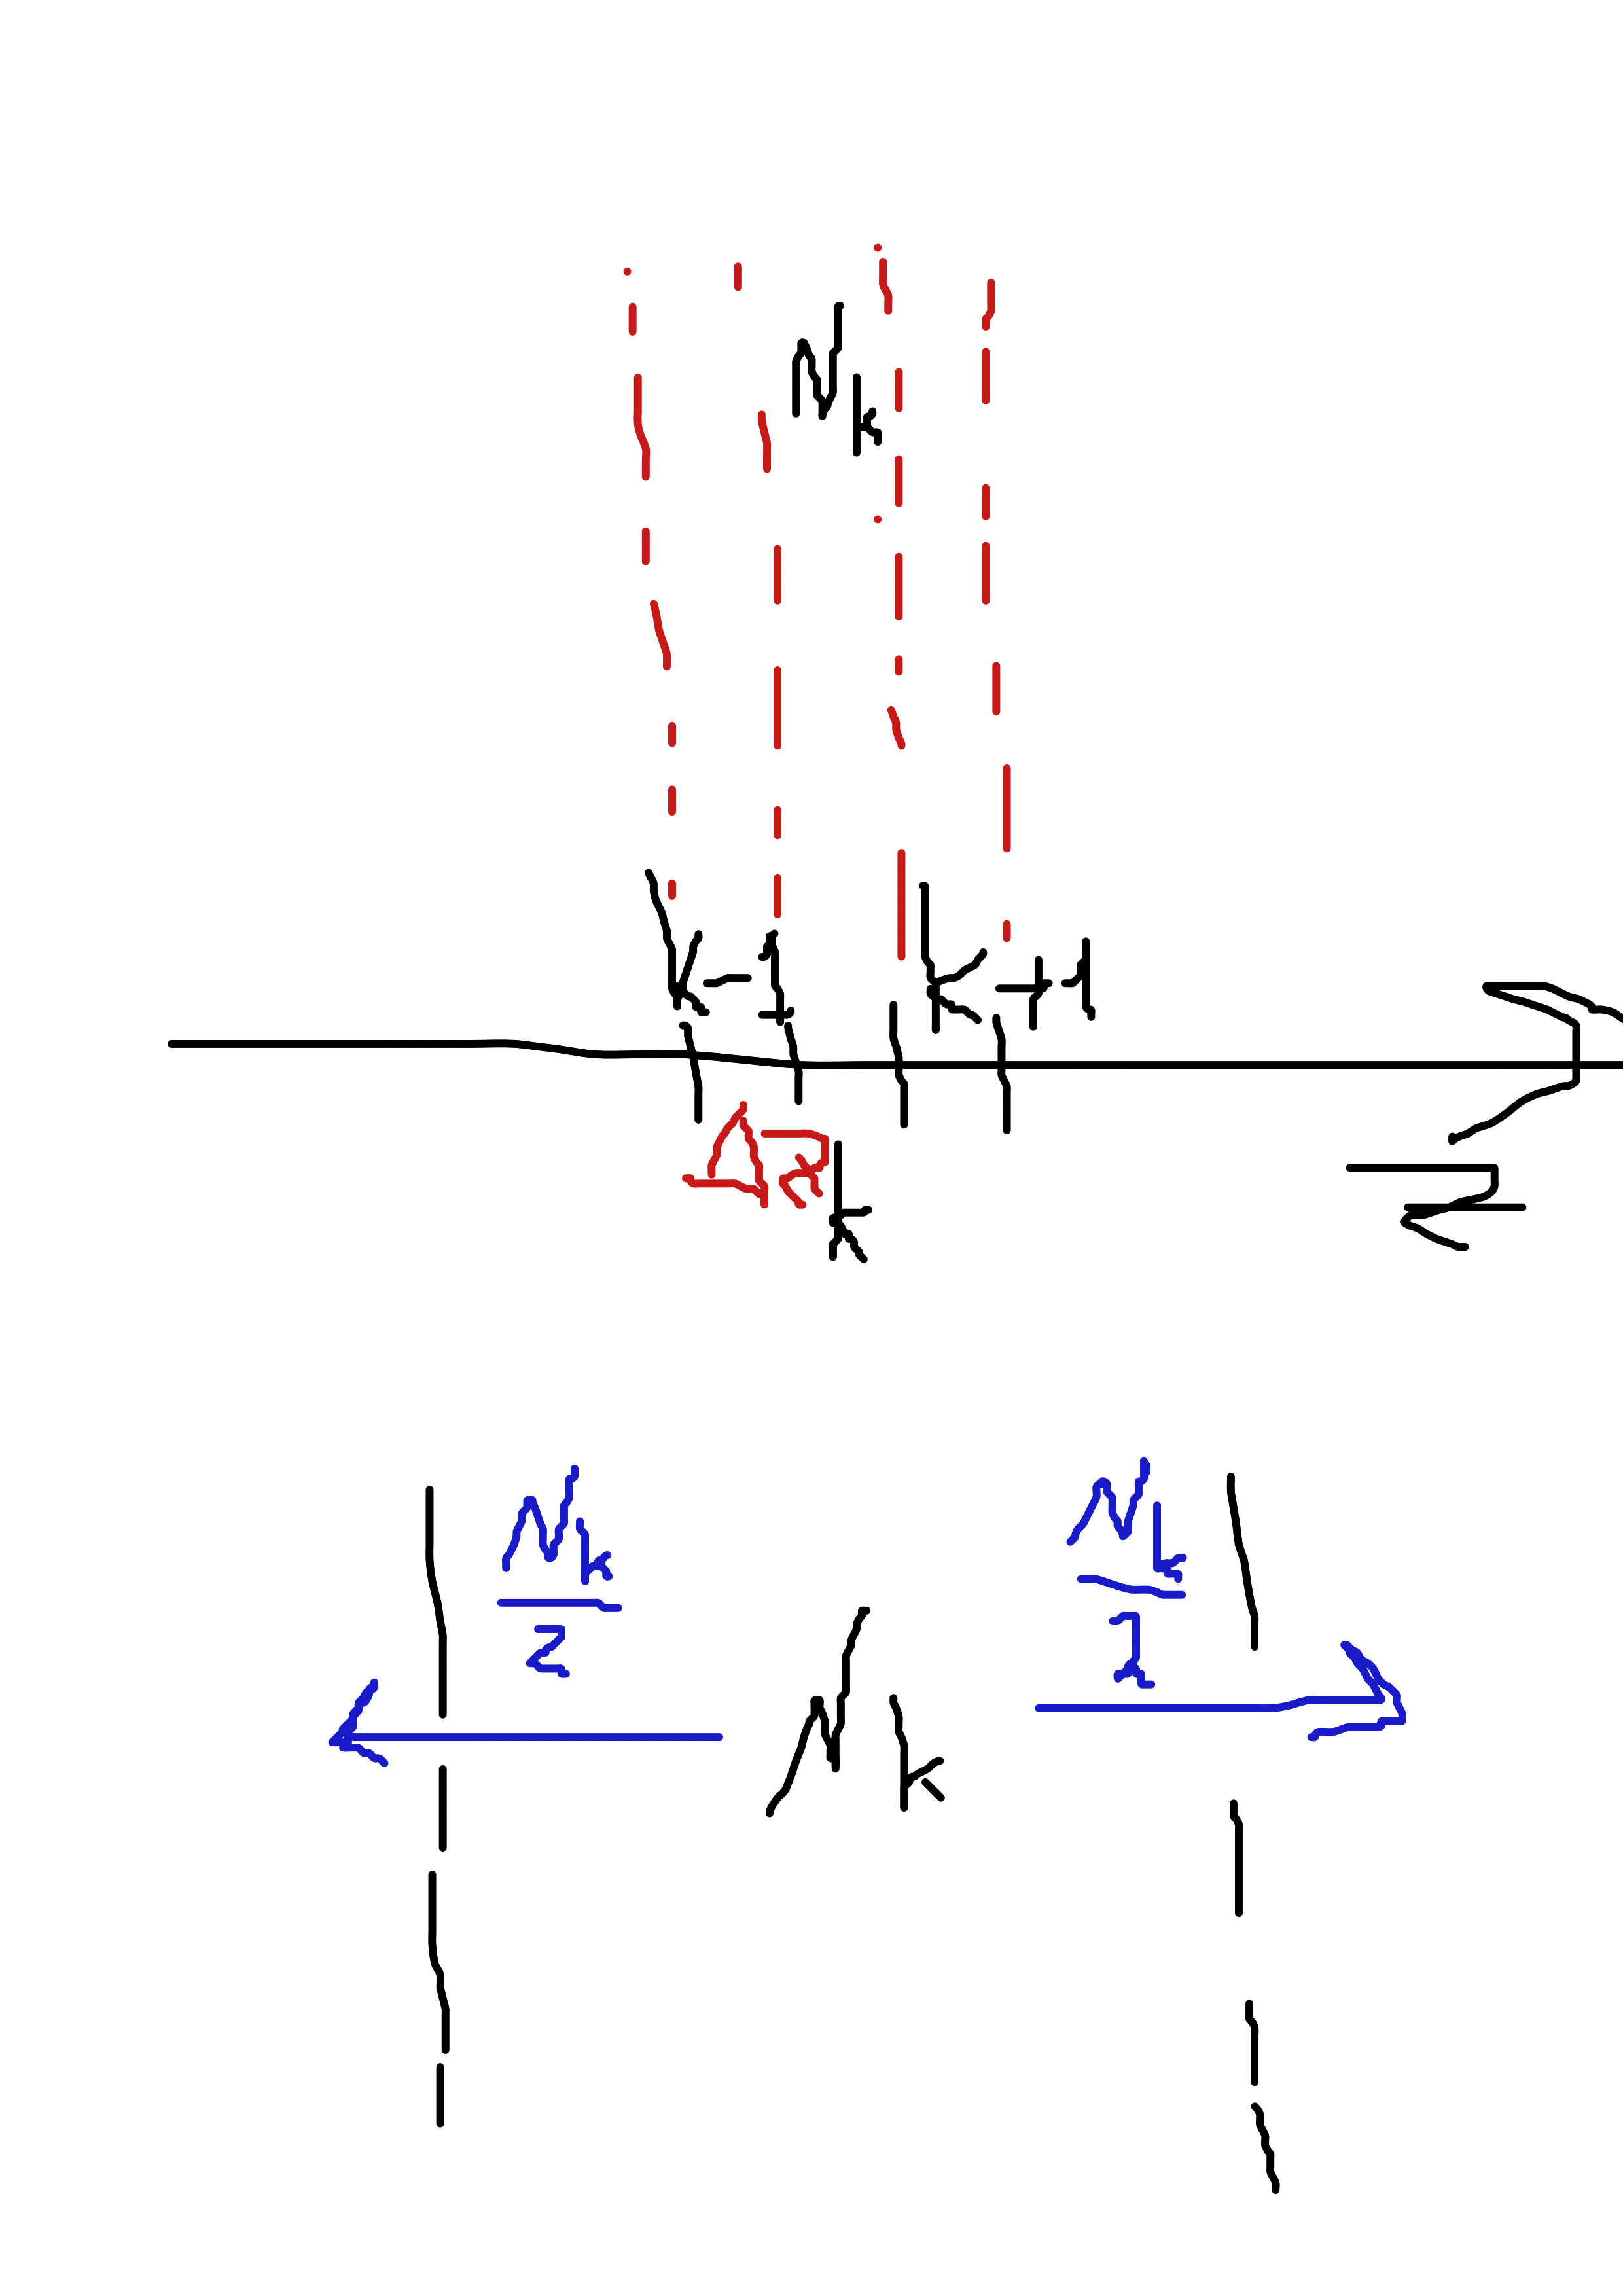 N k
k-1 k+1
Δz k
z
N k / 2 N k / 2
N k